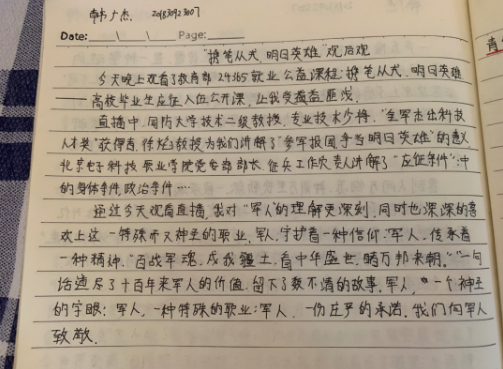 韩广杰. 201830923007
Date: \ \ Page:
"携笔从戎, 明日英雄"观后观
今天晚上观看了教育部24365就业公益课程: 携笔从戎. 明日英雄
——高校毕业生应征入伍公开课, 让我受益匪浅.
直播中, 国防大学技术二级教授, 专业技术少将. "全军杰出科技
人才奖"获得者. 徐焰教授为我们讲解了"参军报国 争当明日英雄"的意义
北京电子科技职业学院党安部部长. 征兵工作负责人讲解了"应征条件"中
的身体条件, 政治条件……
通过今天观看直播, 我对"军人"的理解更深刻, 同时也深深的喜
欢上这一特殊而又神圣的职业, 军人, 守护着一种信仰. 军人, 传承着
一种精神. "百战军魂, 戍我疆土, 看中华盛世, 晒万邦来朝." 一句
话道尽了十百年来军人的价值, 留下了数不清的故事. 军人, 一个神圣
的字眼; 军人, 一种特殊的职业; 军人, 一份庄严的承诺, 我们向军人
致敬.